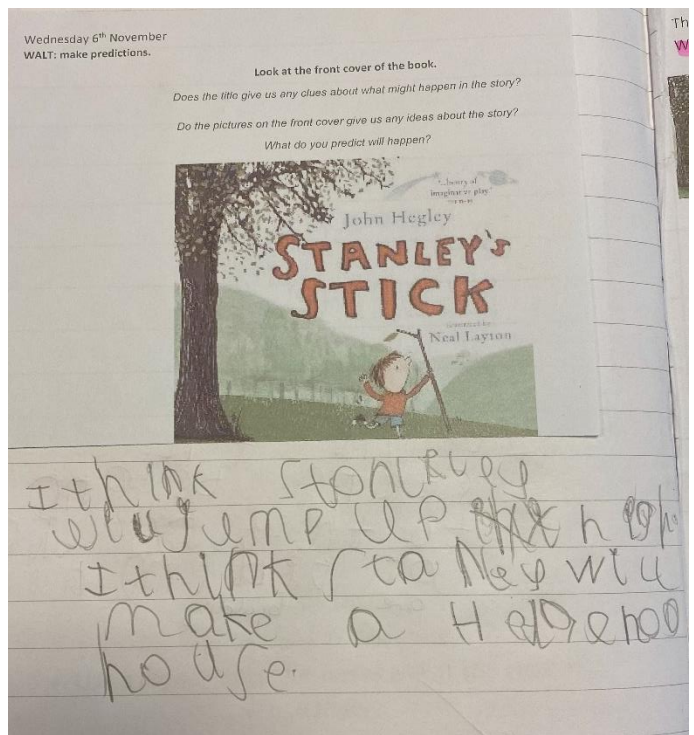 Wednesday 6th November
WALT: make predictions.
Th
W
Look at the front cover of the book.
Does the title give us any clues about what might happen in the story?
Do the pictures on the front cover give us any ideas about the story?
What do you predict will happen?
imaginative play'
John Hegley
STANLEY'S
STICK
Neal Layton
I think
jump up
I think StaNley will
make a
house.